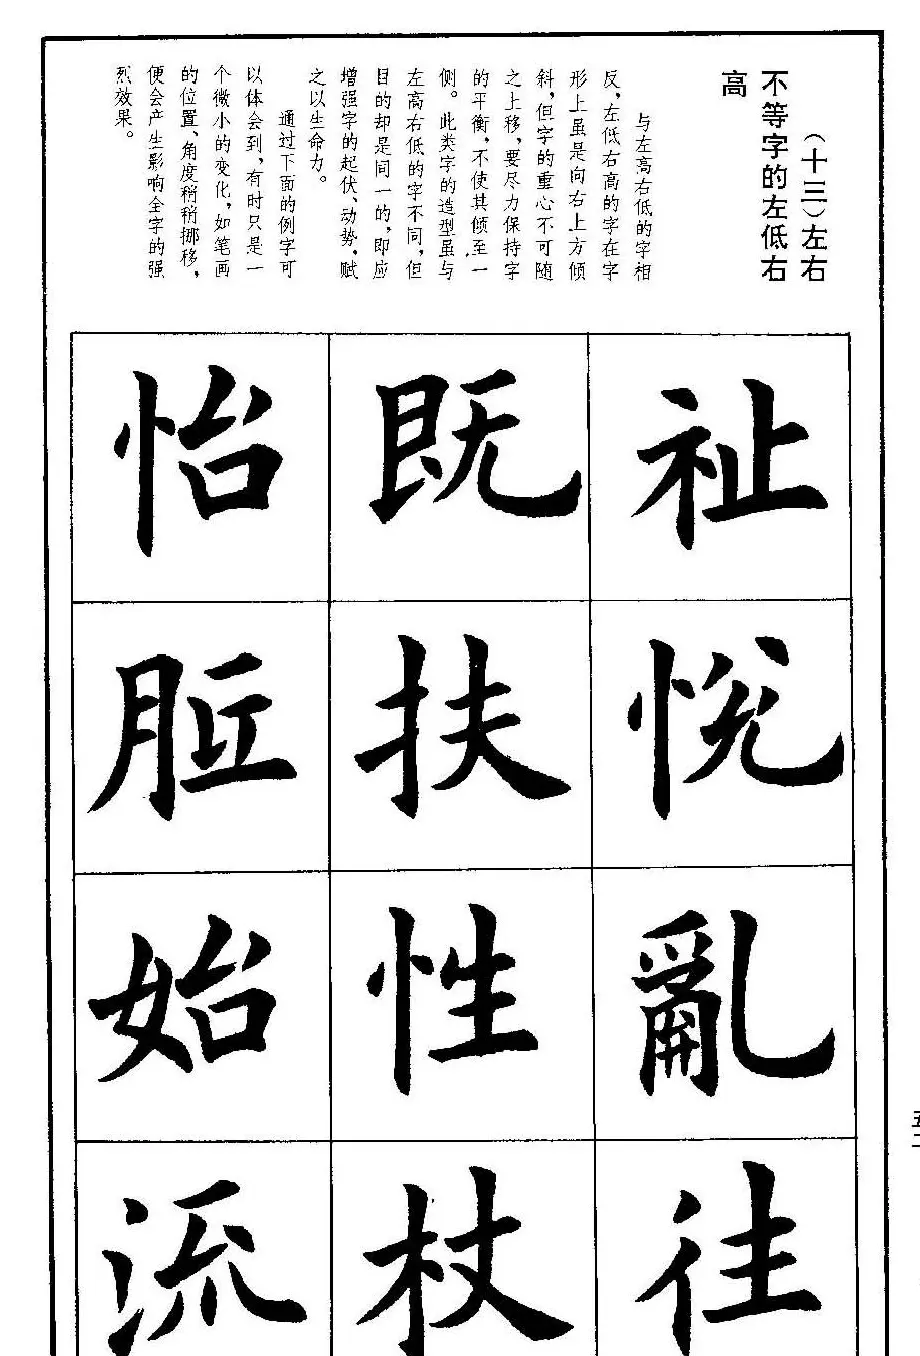 （十三）左右
不等字的左低右
高
与左高右低的字相
反，左低右高的字在字
形上虽是向右上方倾
斜，但字的重心不可随
之上移，要尽力保持字
的平衡，不使其倾至一
侧。此类字的造型虽与
左高右低的字不同，但
目的却是同一的，即应
增强字的起伏、动势，赋
之以生命力。
通过下面的例字可
以体会到，有时只是一
个微小的变化，如笔画
的位置、角度稍稍挪移，
便会产生影响全字的强
烈效果。
祉
悅
亂
往
既
扶
性
杖
怡
始
流